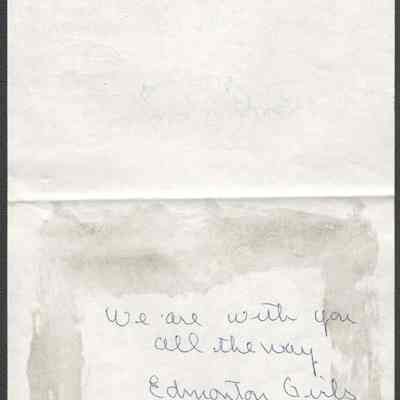 We are with you
all the way
Edmonton Girls